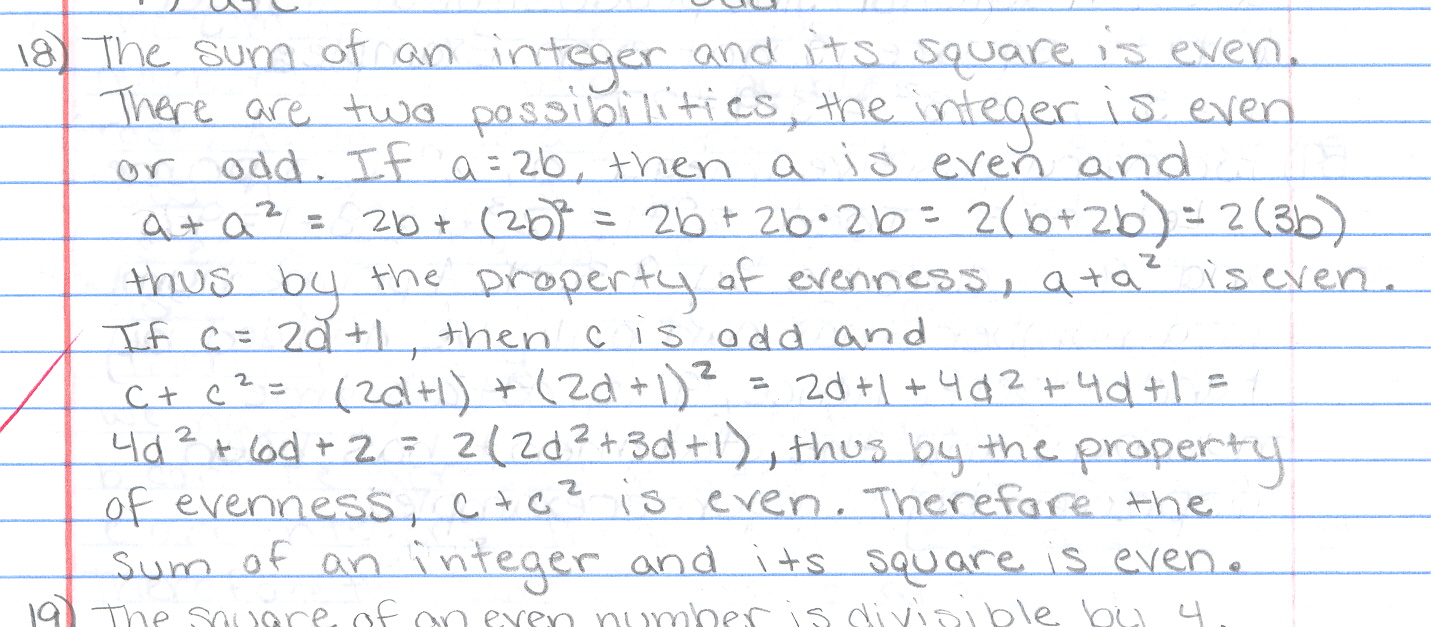 18) The sum of an integer and its square is even.
There are two possibilities, the integer is even
or odd. If a=2b, then a is even and
a + a² = 2b + (2b)² = 2b + 2b•2b = 2(b+2b) = 2(3b)
thus by the property of evenness, a+a² is even.
If c = 2d+1, then c is odd and
c + c² = (2d+1) + (2d+1)² = 2d+1+4d²+4d+1 =
4d² + 6d + 2 = 2(2d²+3d+1), thus by the property
of evenness, c+c² is even. Therefore the
sum of an integer and its square is even.
19) The square of an even number is divisible by 4.